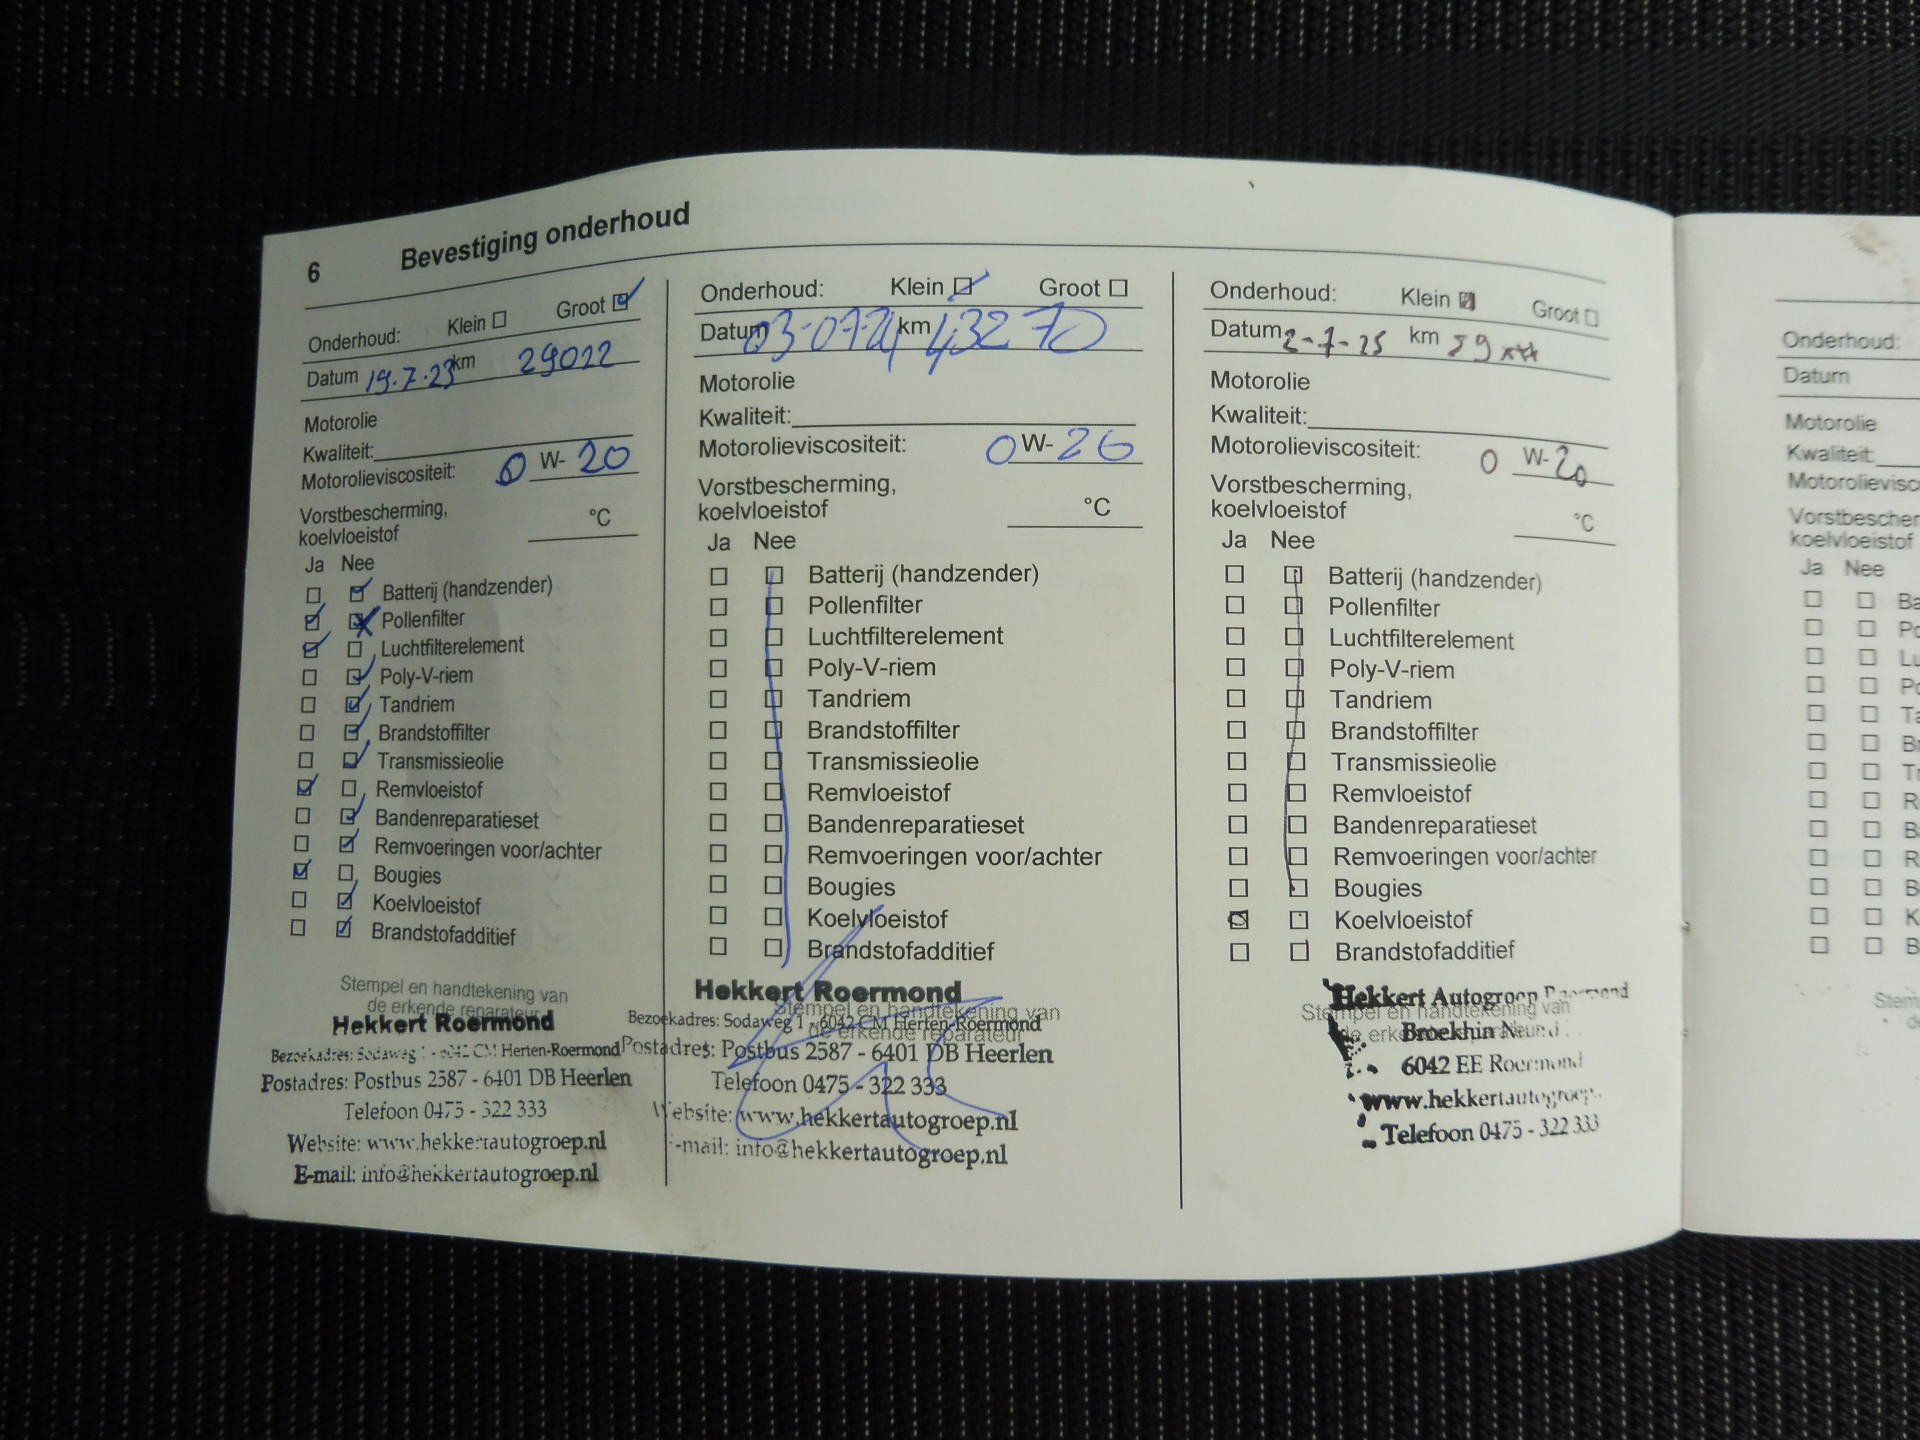 6 Bevestiging onderhoud
Onderhoud: Klein Groot
Datum 19.7.23 km 29022
Motorolie
Kwaliteit:
Motorolieviscositeit: 0 W- 20
Vorstbescherming,
koelvloeistof °C
Ja Nee
Batterij (handzender)
Pollenfilter
Luchtfilterelement
Poly-V-riem
Tandriem
Brandstoffilter
Transmissieolie
Remvloeistof
Bandenreparatieset
Remvoeringen voor/achter
Bougies
Koelvloeistof
Brandstofadditief
Stempel en handtekening van
de erkende reparateur
Hekkert Roermond
Bezoekadres: Sodaweg 1 - 6042 CM Herten-Roermond
Postadres: Postbus 2587 - 6401 DB Heerlen
Telefoon 0475 - 322 333
Website: www.hekkertautogroep.nl
E-mail: info@hekkertautogroep.nl
Onderhoud: Klein Groot
Datum 03-07-24 km 43270
Motorolie
Kwaliteit:
Motorolieviscositeit: 0 W- 20
Vorstbescherming,
koelvloeistof °C
Ja Nee
Batterij (handzender)
Pollenfilter
Luchtfilterelement
Poly-V-riem
Tandriem
Brandstoffilter
Transmissieolie
Remvloeistof
Bandenreparatieset
Remvoeringen voor/achter
Bougies
Koelvloeistof
Brandstofadditief
Stempel en handtekening van
de erkende reparateur
Hekkert Roermond
Bezoekadres: Sodaweg 1 - 6042 CM Herten-Roermond
Postadres: Postbus 2587 - 6401 DB Heerlen
Telefoon 0475 - 322 333
Website: www.hekkertautogroep.nl
E-mail: info@hekkertautogroep.nl
Onderhoud: Klein Groot
Datum 2-7-25 km
Motorolie
Kwaliteit:
Motorolieviscositeit: 0 W- 20
Vorstbescherming,
koelvloeistof °C
Ja Nee
Batterij (handzender)
Pollenfilter
Luchtfilterelement
Poly-V-riem
Tandriem
Brandstoffilter
Transmissieolie
Remvloeistof
Bandenreparatieset
Remvoeringen voor/achter
Bougies
Koelvloeistof
Brandstofadditief
Stempel en handtekening van
de erkende
Hekkert Autogroep Roermond
Broekhin
6042 EE Roermond
www.hekkertautogroep.
Telefoon 0475 - 322 333
Onderhoud:
Datum
Motorolie
Kwaliteit:
Motorolievisc
Vorstbescher
koelvloeistof
Ja Nee
Ba
Po
Lu
Po
Ta
Br
Tr
R
B
R
B
K
B
Stem
d